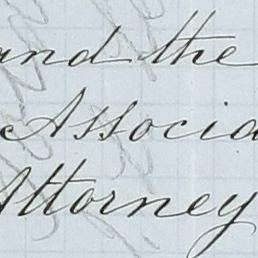 and the
Associa
Attorney